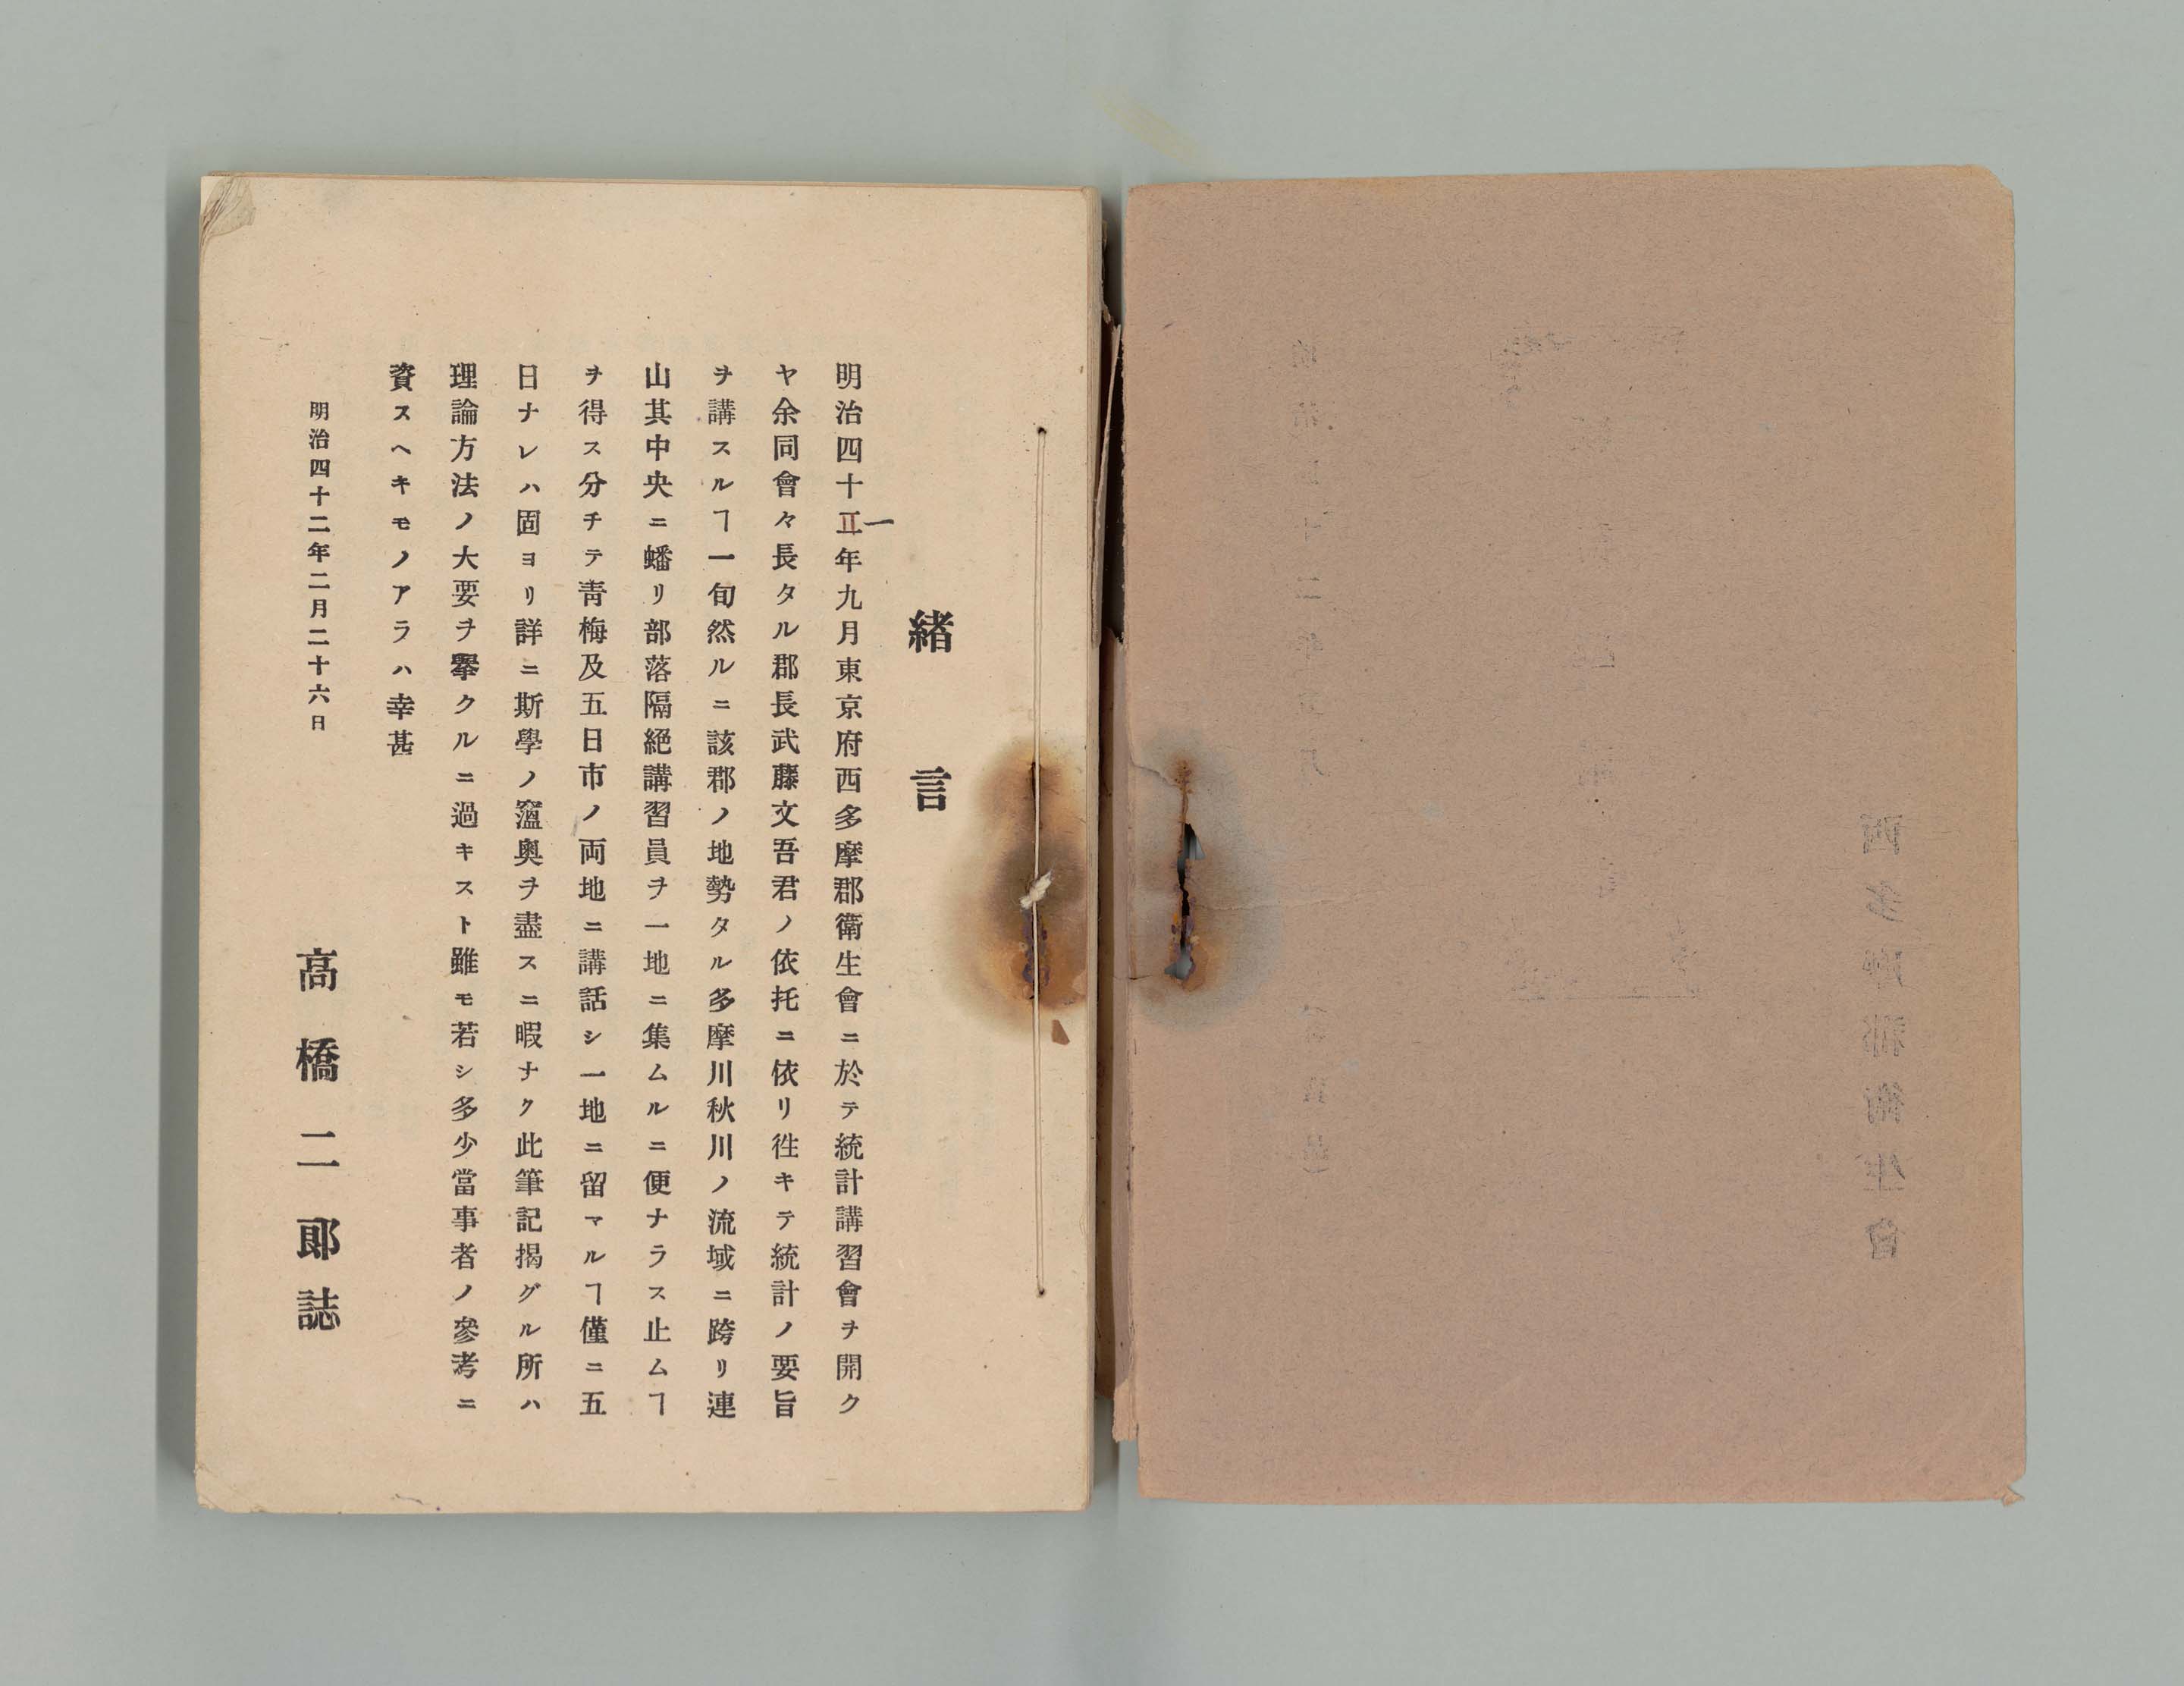 緒言
明治四十二年九月東京府西多摩郡衛生會ニ於テ統計講習會ヲ開ク
一
ヤ余同會々長タル郡長武藤文吾君ノ依托ニ依リ徃キテ統計ノ要旨
ヲ講スルヿ一旬然ルニ該郡ノ地勢タル多摩川秋川ノ流域ニ跨リ連
山其中央ニ蟠リ部落隔絕講習員ヲ一地ニ集ムルニ便ナラス止ムヿ
ヲ得ス分チテ靑梅及五日市ノ両地ニ講話シ一地ニ留マルヿ僅ニ五
日ナレハ固ヨリ詳ニ斯學ノ薀奥ヲ盡スニ暇ナク此筆記揭グル所ハ
理論方法ノ大要ヲ擧クルニ過キスト雖モ若シ多少當事者ノ參考ニ
資スヘキモノアラハ幸甚
明治四十二年二月二十六日
高橋二郎誌
西多摩郡衛生會